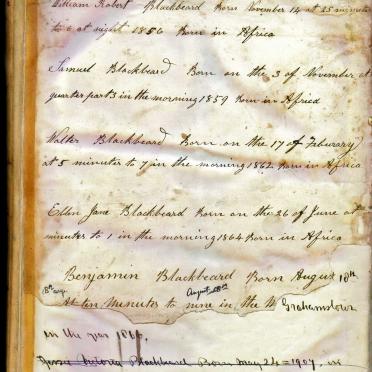 William Robert Blackbeard Born November 14 at 25 minutes
to 6 at night 1856 Born in Africa
Samuel Blackbeard Born on the 3 of November at
quarter part 3 in the morning 1859 Born in Africa
Walter Blackbeard Born on the 17 of Feburary
at 5 minutes to 7 in the morning 1862 Born in Africa
Ellen Jane Blackbeard Born on the 26 of June at
minutes to 1 in the morning 1864 Born in Africa
Benjamin Blackbeard Born August 18th
18th August
At ten Minutes to nine in the M Grahamstown
in the year 1866.
Blackbeard Born May 24 = 1907,